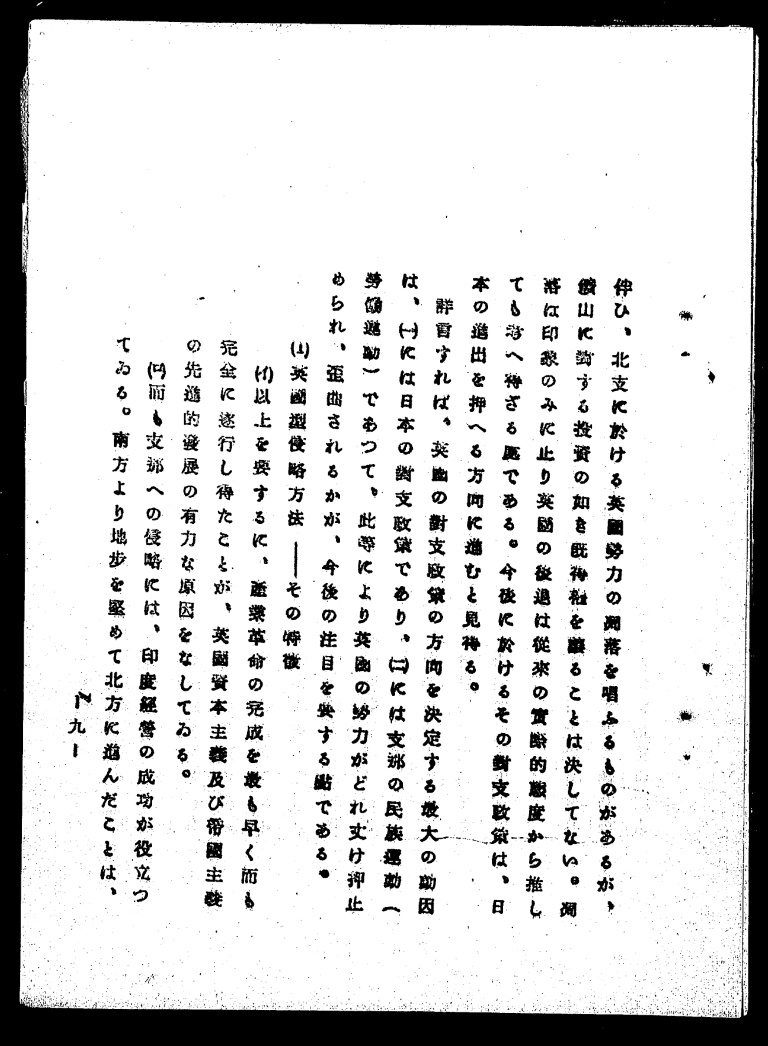 伴ひ、北支に於ける英國勢力の凋落を唱ふるものがあるが、
鑛山に對する投資の如き既得權を讓ることは決してない。凋
落は印象のみに止り英國の後退は從來の實際的態度から推し
ても考へ得ざる處である。今後に於けるその對支政策は、日
本の進出を押へる方向に進むと見得る。
詳言すれば、英國の對支政策の方向を決定する最大の動因
は、(一)には日本の對支政策であり、(二)には支那の民族運動(
勞働運動)であつて、此等により英國の勢力がどれ丈け抑止
められ、歪曲されるかが、今後の注目を要する點である。
(1)英國型侵略方法――その特徵
(イ)以上を要するに、產業革命の完成を最も早く而も
完全に遂行し得たことが、英國資本主義及び帝國主義
の先進的發展の有力な原因をなしてゐる。
(ロ)而も支那への侵略には、印度經營の成功が役立つ
てゐる。南方より地步を堅めて北方に進んだことは、
九